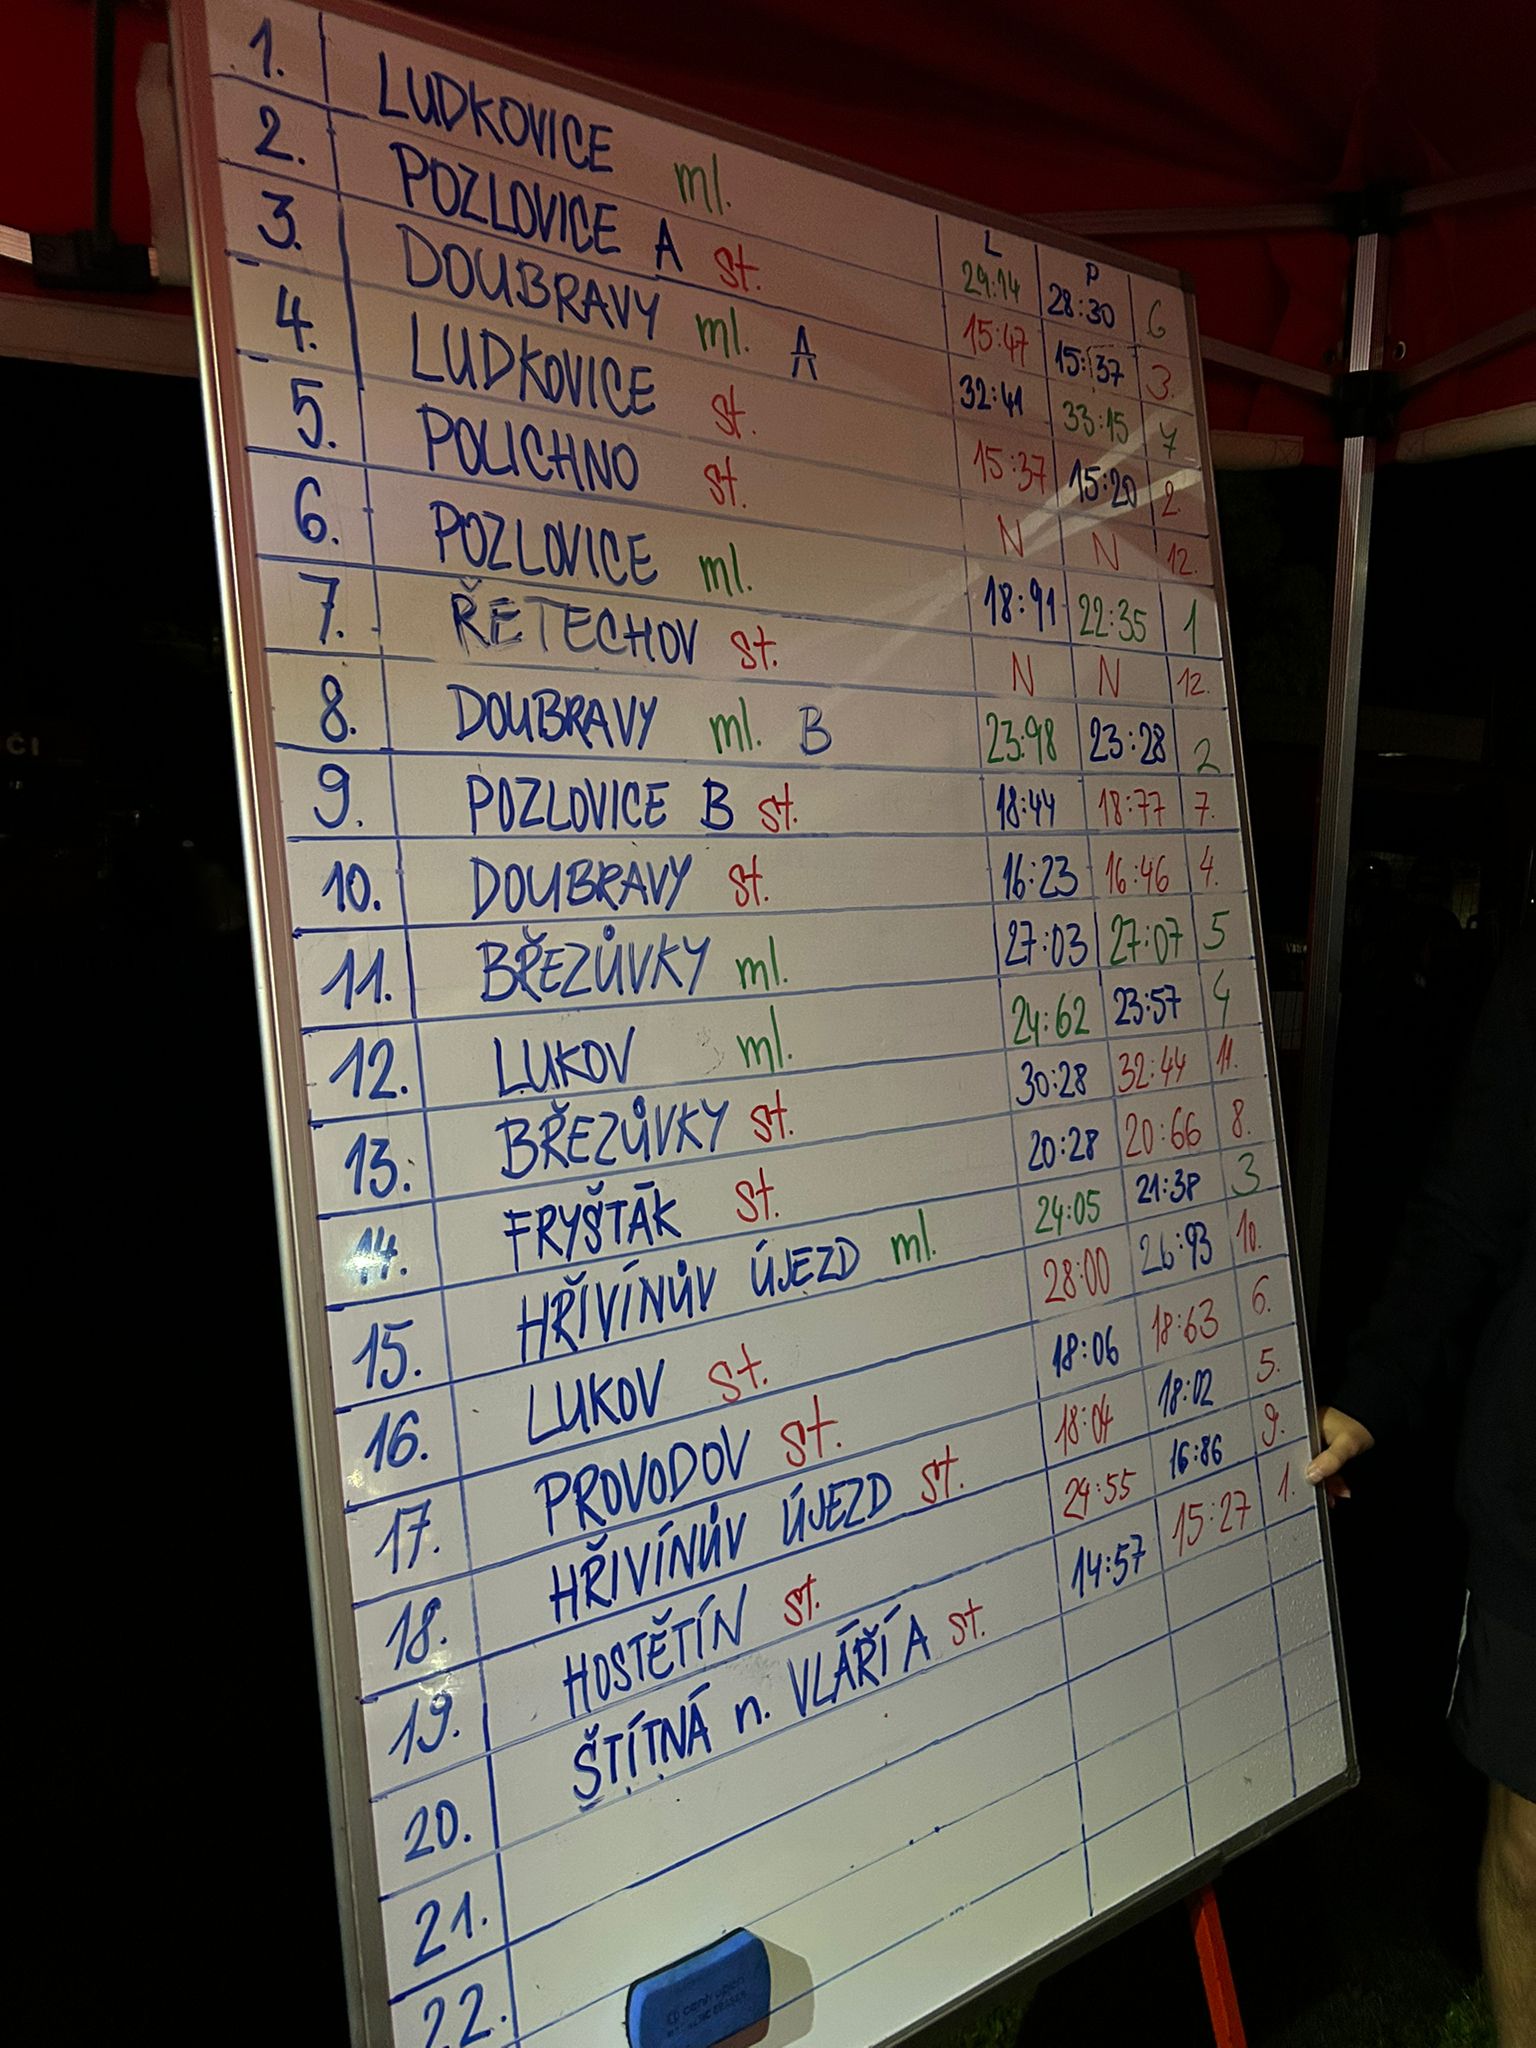 L P
1. LUDKOVICE ml. 29:14 28:30 6
2. POZLOVICE A st. 15:47 15:37 3.
3. DOUBRAVY ml. A 32:41 33:15 7
4. LUDKOVICE st. 15:37 15:20 2.
5. POLICHNO st. N N 12.
6. POZLOVICE ml. 18:91 22:35 1
7. ŘETECHOV st. N N 12.
8. DOUBRAVY ml. B 23:98 23:28 2
9. POZLOVICE B st. 18:44 18:77 7.
10. DOUBRAVY st. 16:23 16:46 4.
11. BŘEZŮVKY ml. 27:03 27:07 5
12. LUKOV ml. 24:62 23:57 4
13. BŘEZŮVKY st. 30:28 32:44 11.
14. FRYŠTÁK st. 20:28 20:66 8.
15. HŘIVÍNŮV ÚJEZD ml. 24:05 21:38 3
16. LUKOV st. 28:00 26:93 10.
17. PROVODOV st. 18:06 18:63 6.
18. HŘIVÍNŮV ÚJEZD st. 18:04 18:02 5.
19. HOSTĚTÍN st. 24:55 16:86 9.
20. ŠTÍTNÁ n. VLÁŘÍ A st. 14:57 15:27 1.
21.
22.